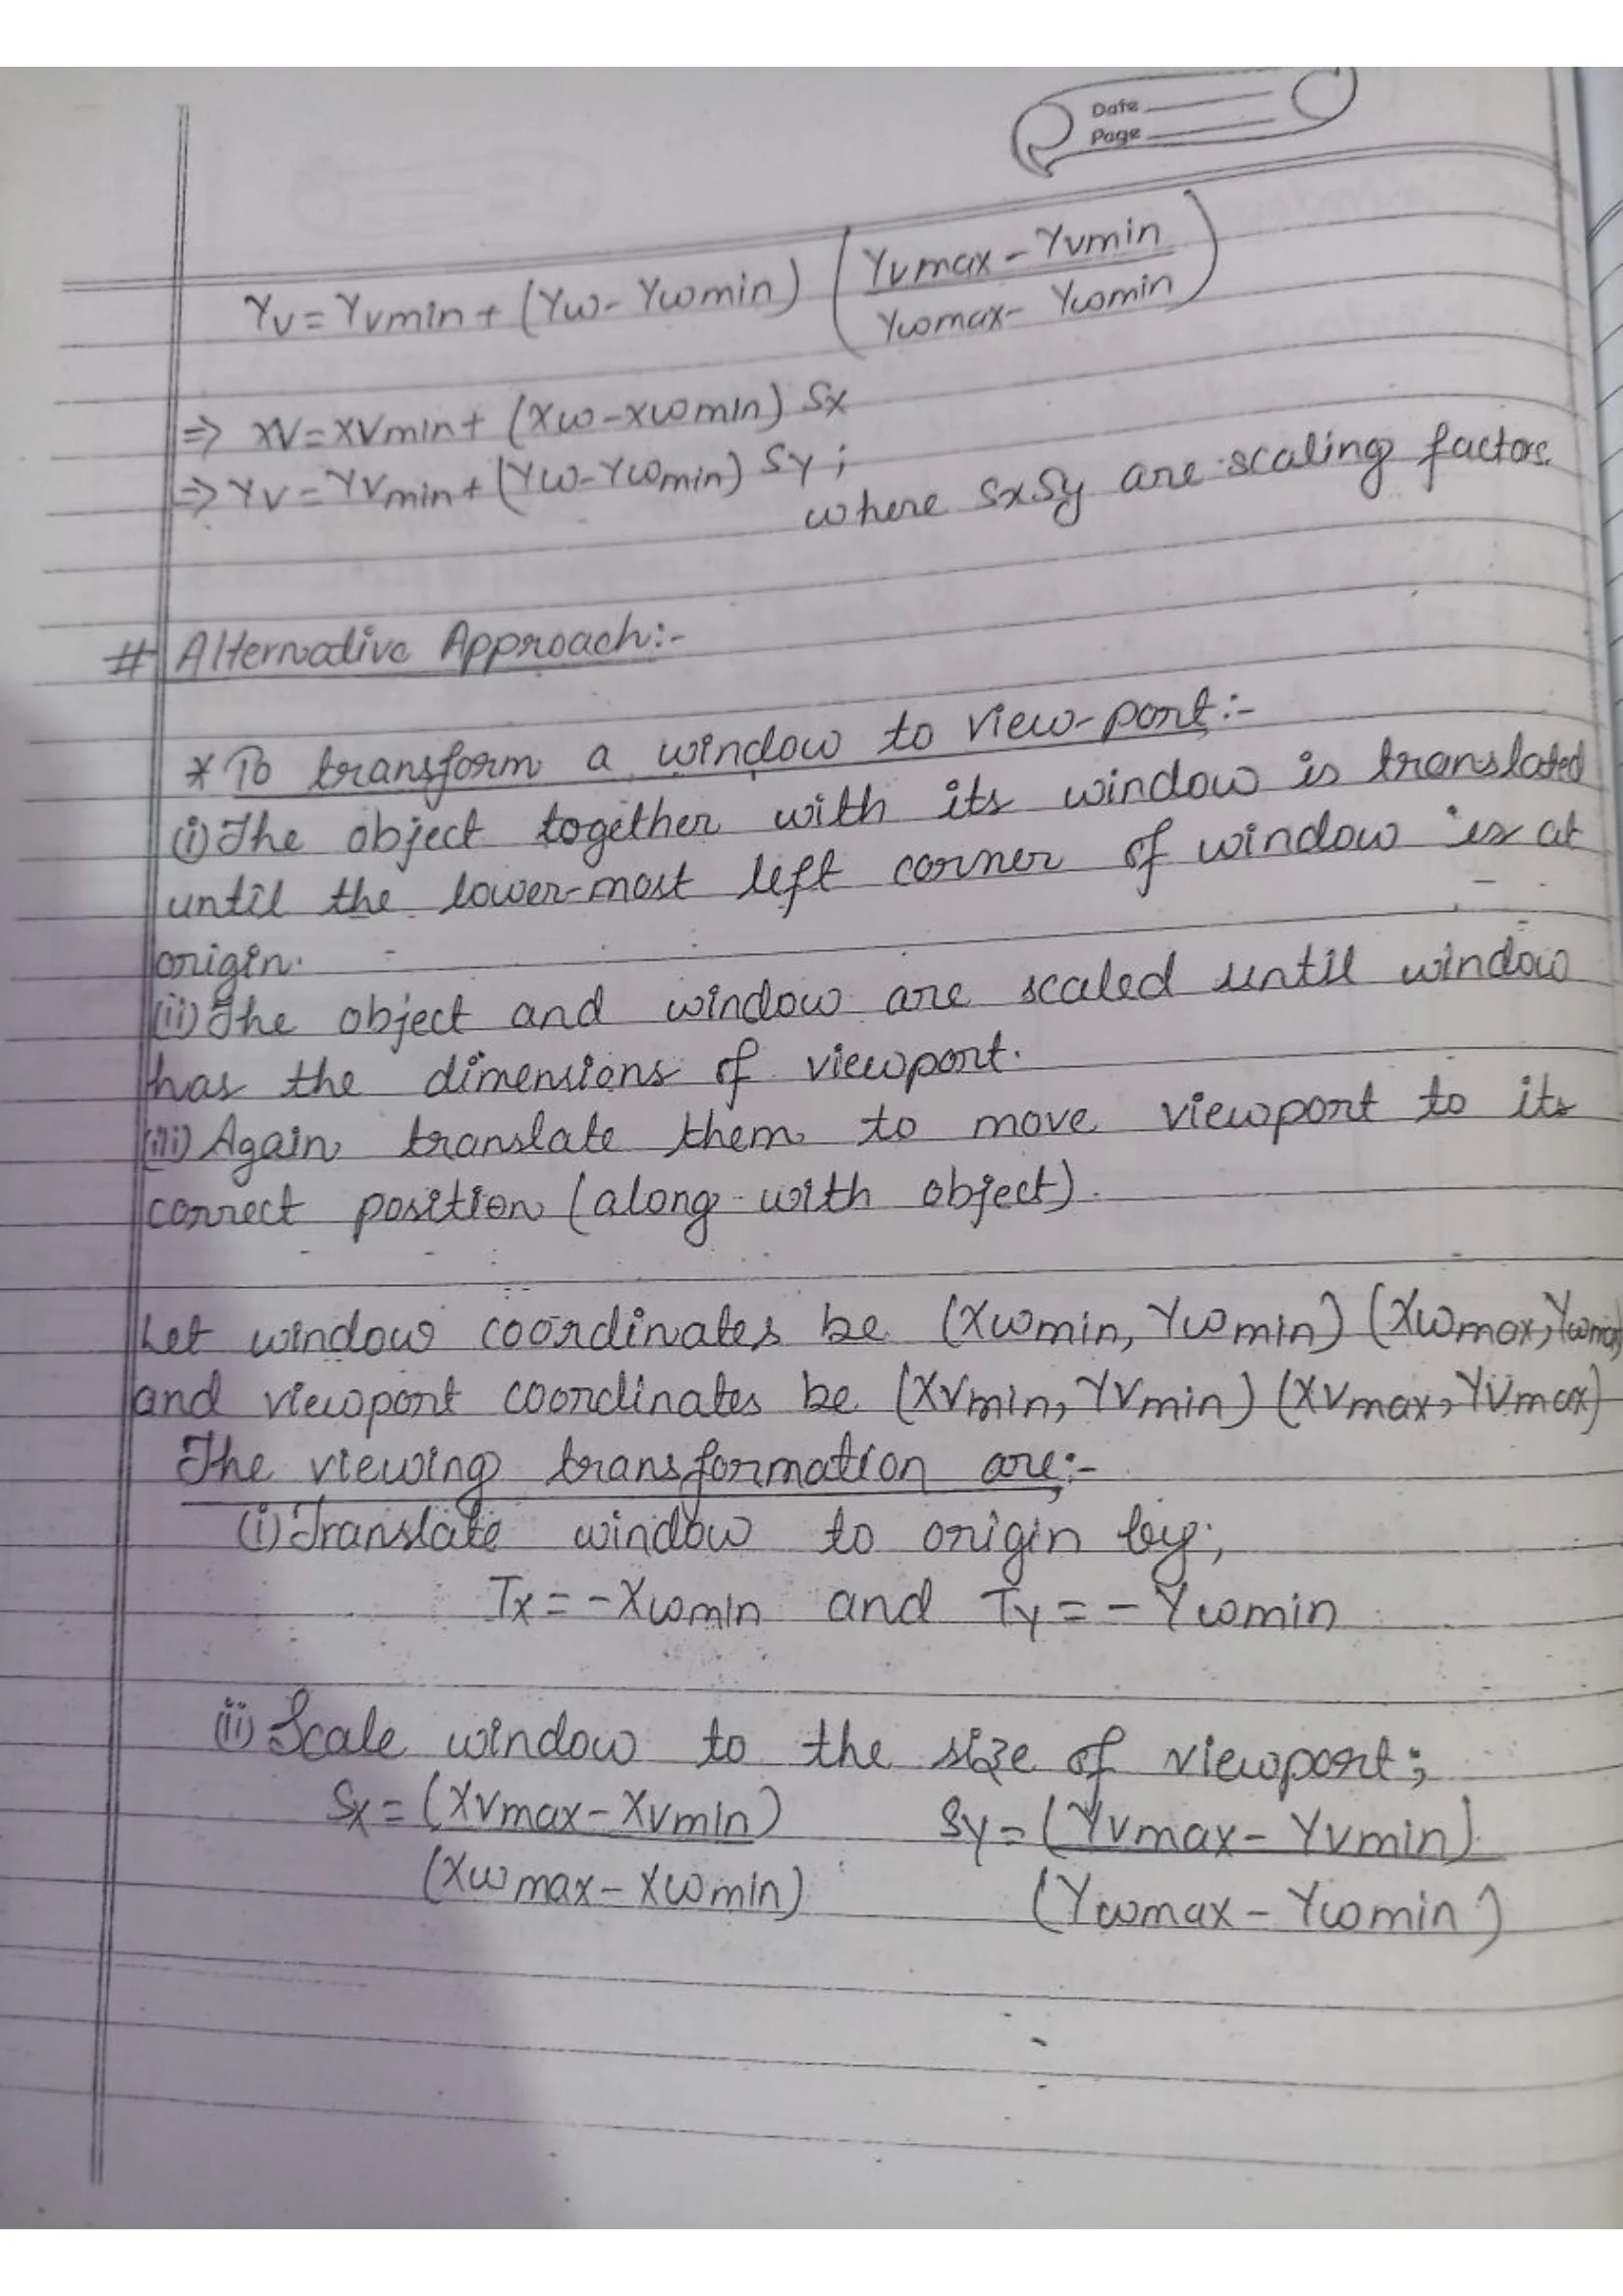 Date
Page
Yv = Yvmin + (Yw - Ywmin) (Yvmax - Yvmin / Ywmax - Ywmin)
⇒ Xv = Xvmin + (Xw - Xwmin) Sx
⇒ Yv = Yvmin + (Yw - Ywmin) Sy ;
where SxSy are scaling factors.
# Alternative Approach:-
* To transform a window to view-port:-
(i) The object together with its window is translated
until the lower-most left corner of window is at
origin.
(ii) The object and window are scaled until window
has the dimensions of viewport.
(iii) Again translate them to move viewport to its
correct position (along with object).
Let window coordinates be (Xwmin, Ywmin) (Xwmax, Ywmax)
and viewport coordinates be (Xvmin, Yvmin) (Xvmax, Yvmax)
The viewing transformation are:-
(i) Translate window to origin by;
Tx = -Xwmin and Ty = - Ywmin
(ii) Scale window to the size of viewport;
Sx = (Xvmax - Xvmin) Sy = (Yvmax - Yvmin)
(Xwmax - Xwmin) (Ywmax - Ywmin)